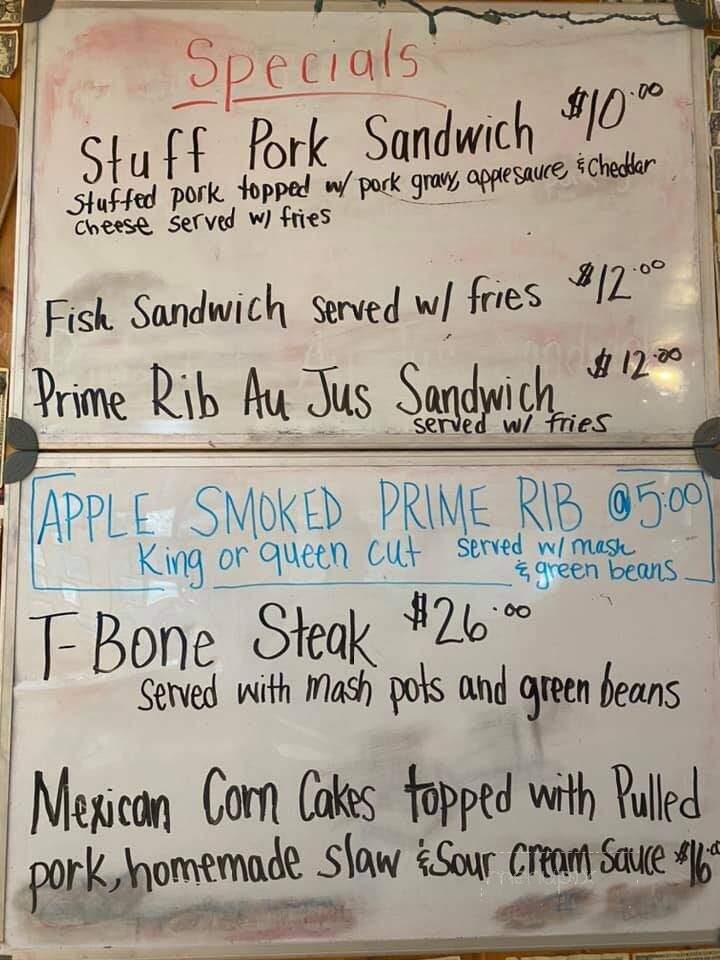 Specials
Stuff Pork Sandwich $10.00
Stuffed pork topped w/ pork gravy, applesauce, & Cheddar
cheese served w/ fries
Fish Sandwich served w/ fries $12.00
Prime Rib Au Jus Sandwich $12.00
served w/ fries
APPLE SMOKED PRIME RIB @5:00
King or queen cut served w/ mash
& green beans
T-Bone Steak $26.00
Served with mash pots and green beans
Mexican Corn Cakes topped with Pulled
pork, homemade slaw & Sour cream Sauce $16.0